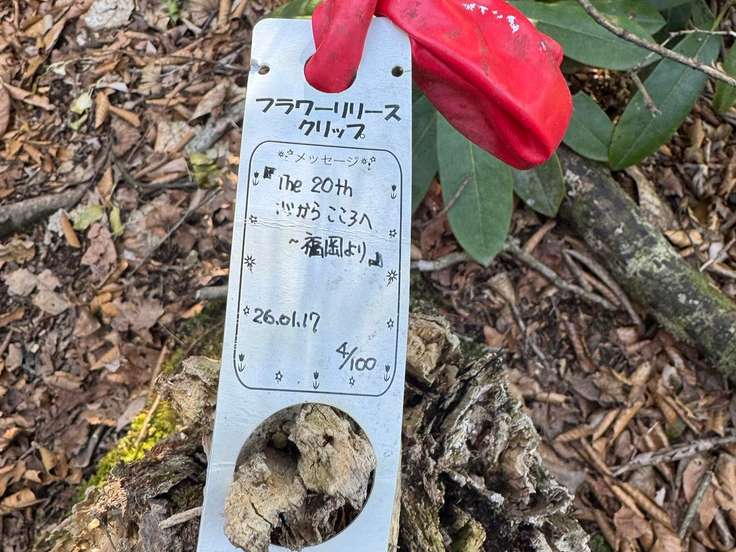 フラワーリリース
クリップ
メッセージ
『The 20th
心からこころへ
～福岡より』
26.01.17
4/100